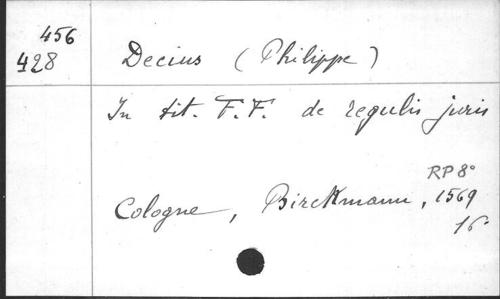 456
428
Decius (Philippe)
In tit. F.F. de regulis juris
RP 8°
Cologne, Birckmann, 1569
16°